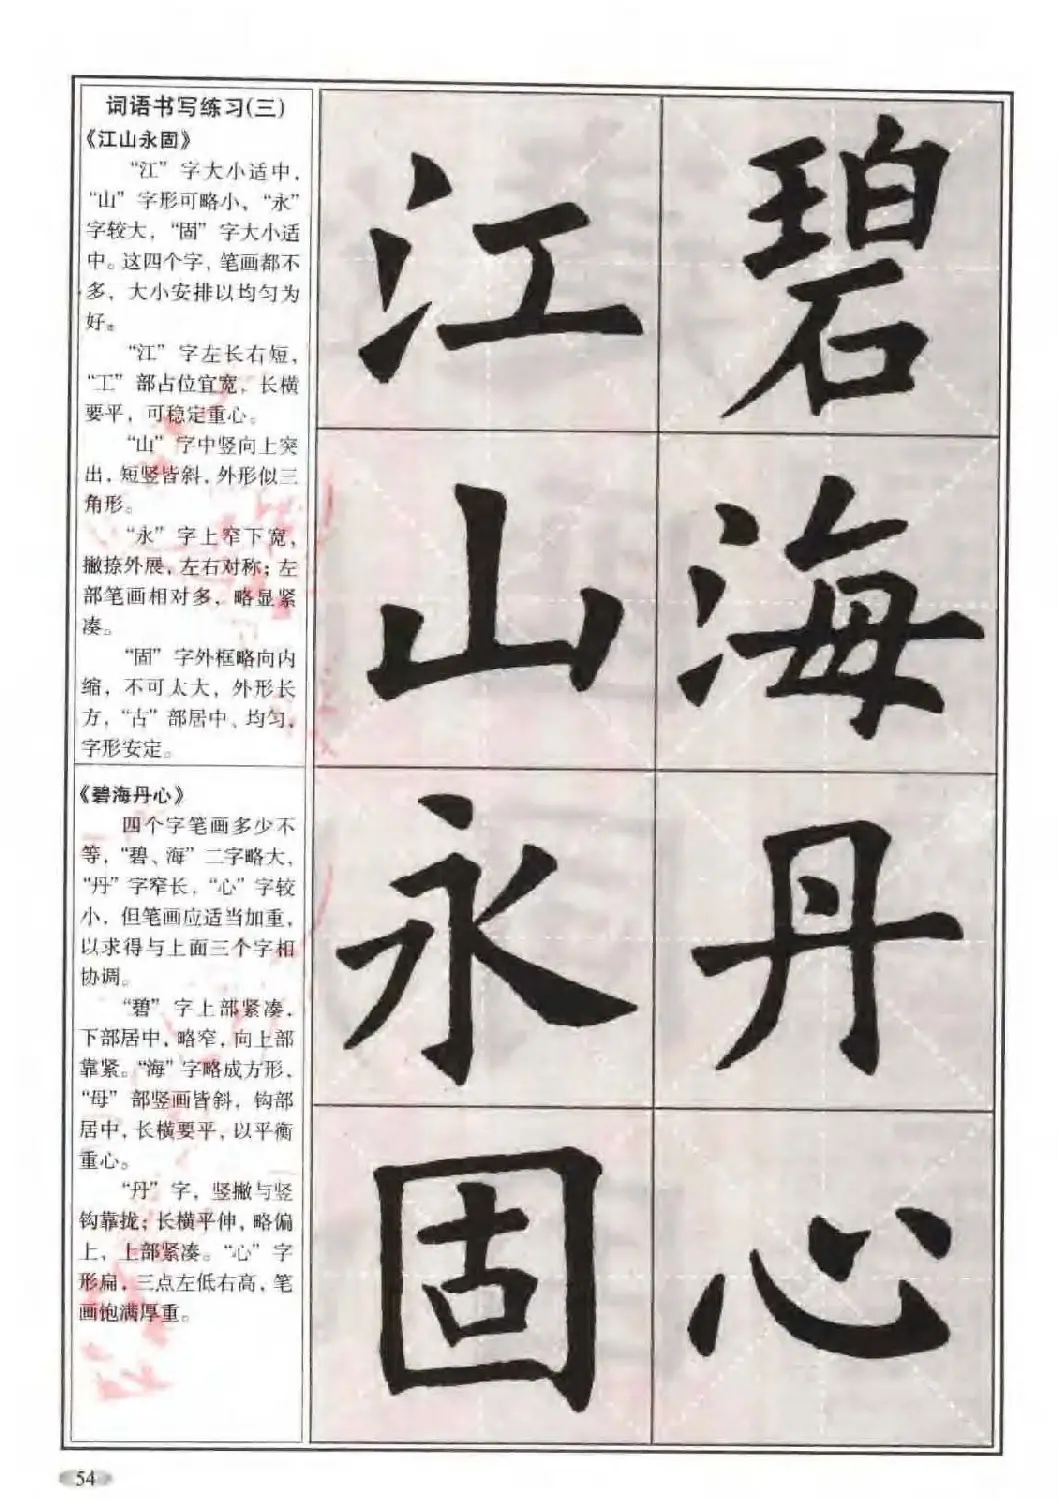 词语书写练习(三)
《江山永固》
“江”字大小适中，
“山”字形可略小、“永”
字较大，“固”字大小适
中。这四个字，笔画都不
多，大小安排以均匀为
好。
“江”字左长右短，
“工”部占位宜宽，长横
要平，可稳定重心。
“山”字中竖向上突
出，短竖皆斜，外形似三
角形。
“永”字上窄下宽，
撇捺外展，左右对称；左
部笔画相对多，略显紧
凑。
“固”字外框略向内
缩，不可太大，外形长
方，“古”部居中、均匀，
字形安定。
《碧海丹心》
四个字笔画多少不
等，“碧、海”二字略大，
“丹”字窄长，“心”字较
小，但笔画应适当加重，
以求得与上面三个字相
协调。
“碧”字上部紧凑，
下部居中，略窄，向上部
靠紧。“海”字略成方形，
“母”部竖画皆斜，钩部
居中，长横要平，以平衡
重心。
“丹”字，竖撇与竖
钩靠拢；长横平伸，略偏
上，上部紧凑。“心”字
形扁，三点左低右高，笔
画饱满厚重。
碧海丹心
江山永固
54